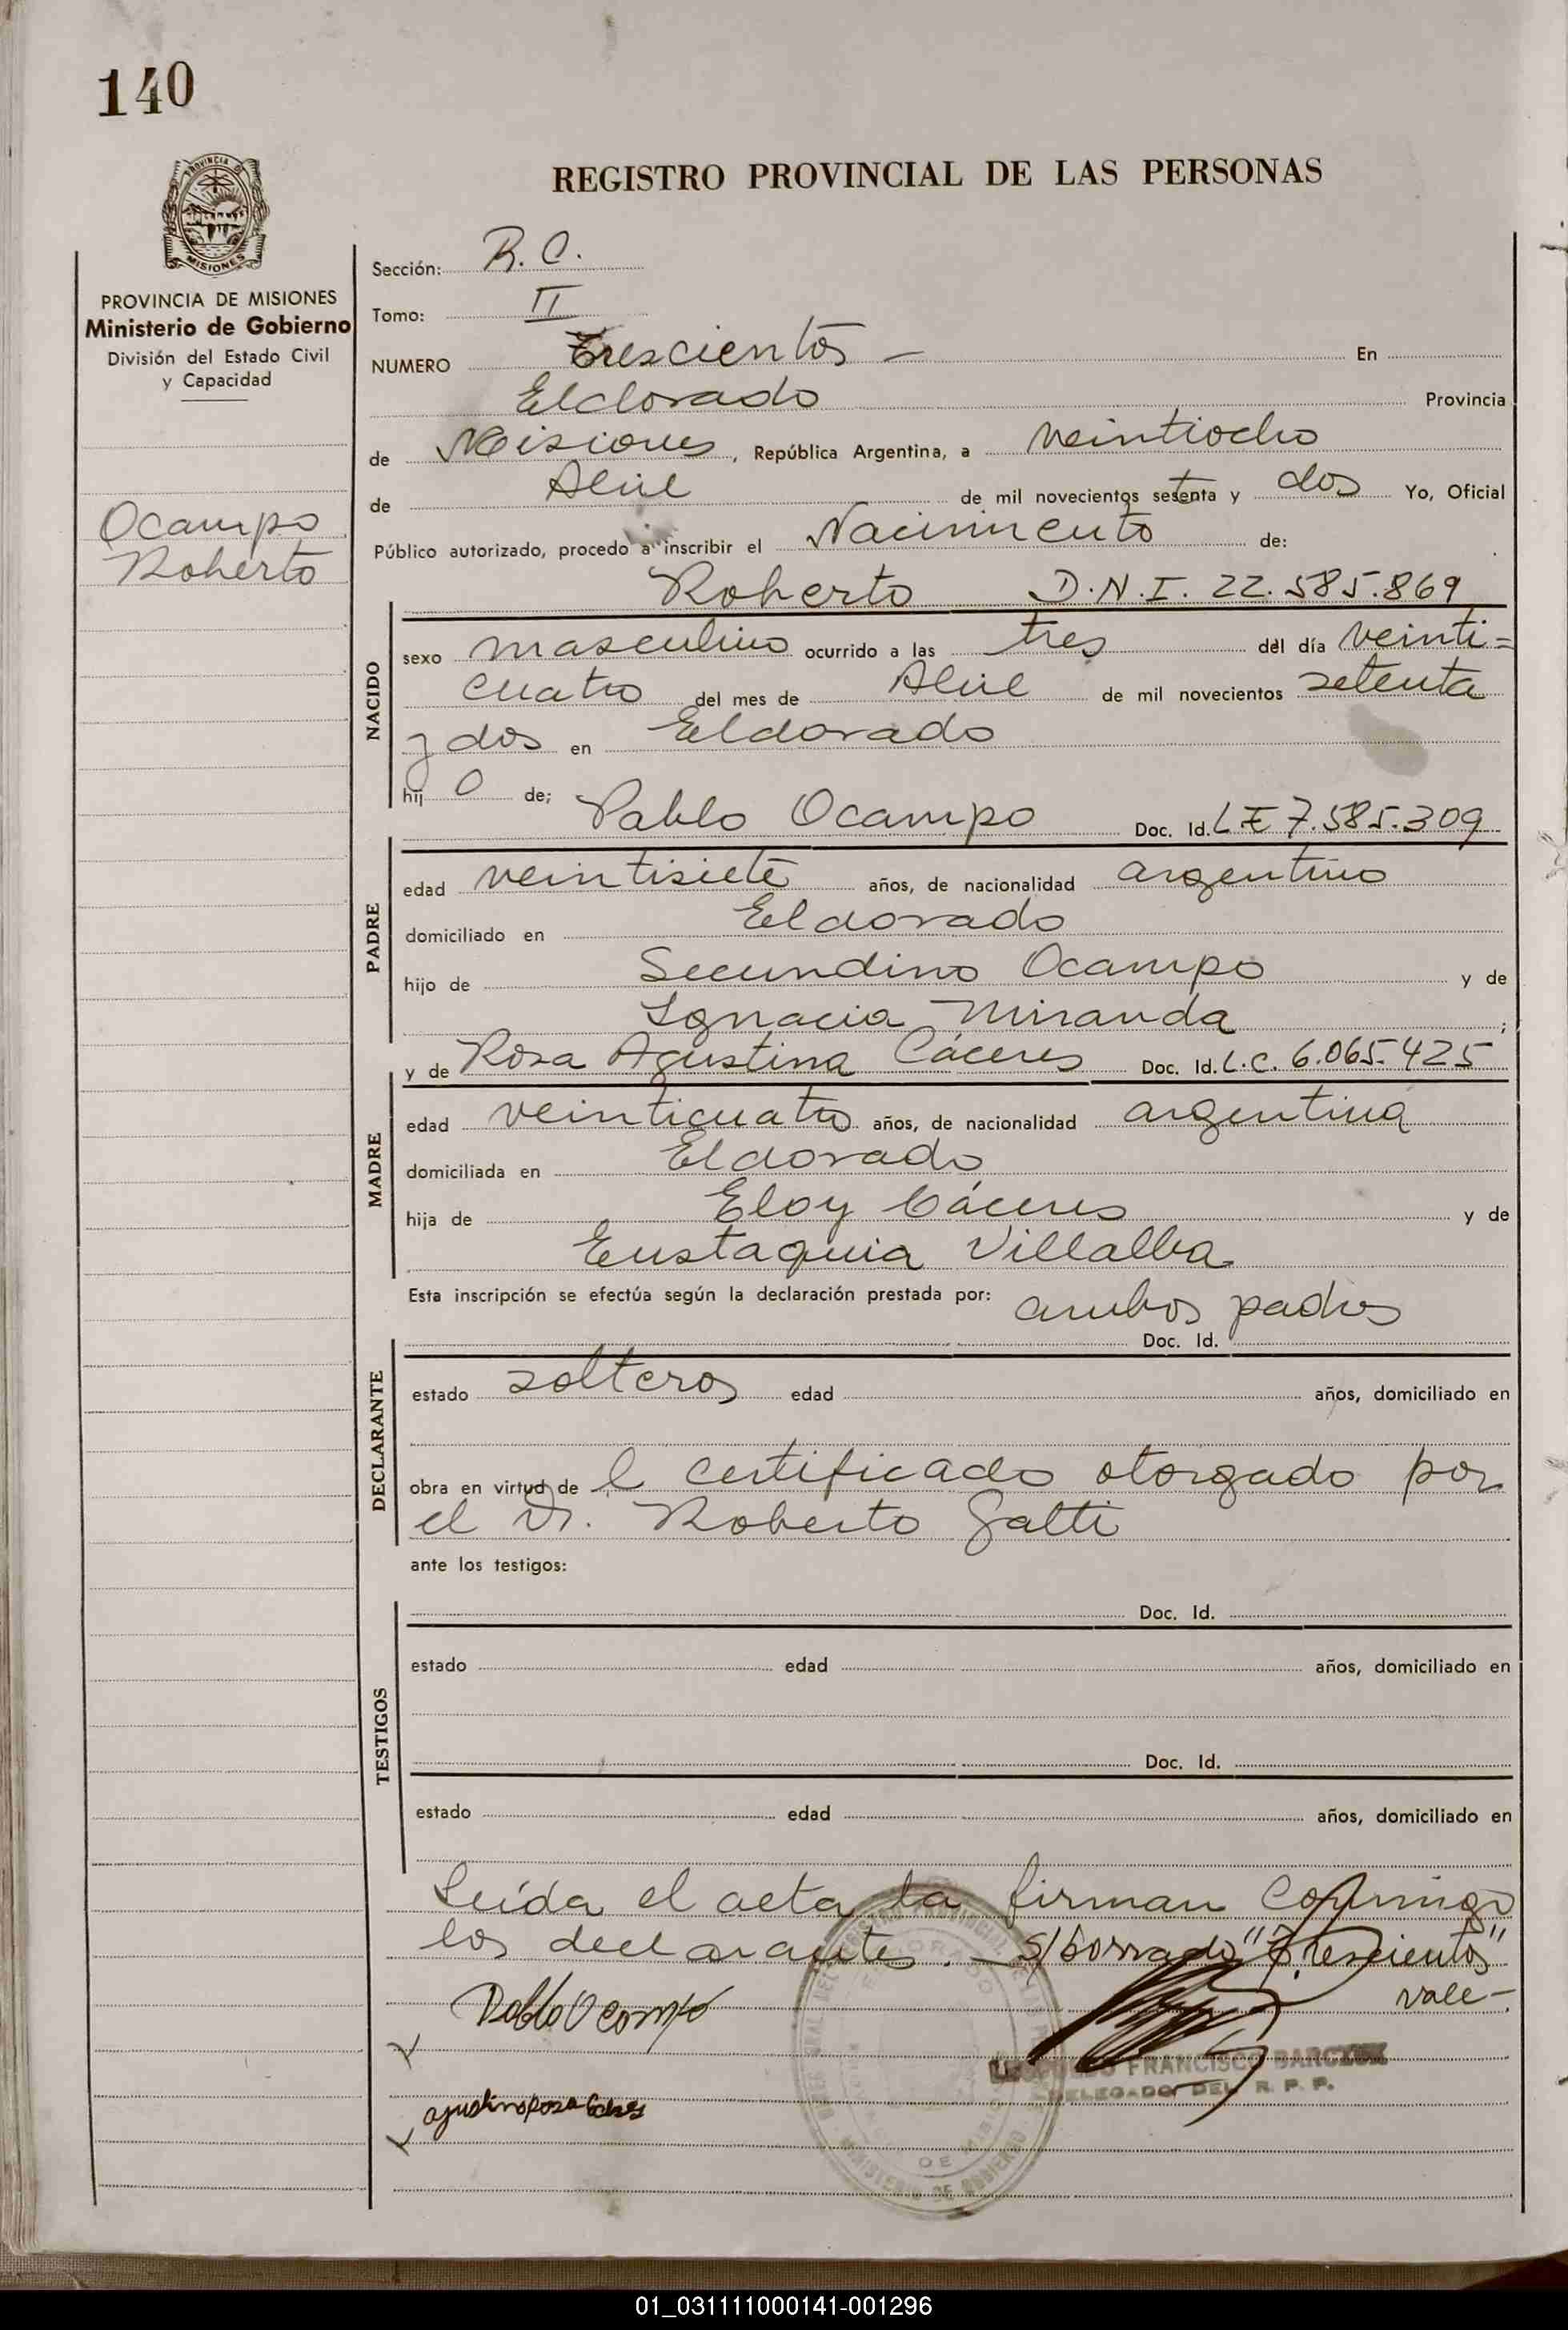 140
PROVINCIA DE
MISIONES
REGISTRO PROVINCIAL DE LAS PERSONAS
PROVINCIA DE MISIONES
Ministerio de Gobierno
División del Estado Civil
y Capacidad
Ocampo
Roberto
Sección: R. C.
Tomo: II
NUMERO Trescientos — En
Eldorado Provincia
de Misiones, República Argentina, a veintiocho
de Abril de mil novecientos setenta y dos Yo, Oficial
Público autorizado, procedo a inscribir el Nacimiento de:
Roberto D.N.I. 22.585.869
NACIDO
sexo masculino ocurrido a las tres del día veinti=
cuatro del mes de Abril de mil novecientos setenta
y dos en Eldorado
hij o de; Pablo Ocampo Doc. Id. L E 7.585.309
PADRE
edad veintisiete años, de nacionalidad argentino
domiciliado en Eldorado
hijo de Secundino Ocampo y de
Ignacia Miranda ;
y de Rosa Agustina Cáceres Doc. Id. L.C. 6.065.425
MADRE
edad veinticuatro años, de nacionalidad argentina
domiciliada en Eldorado
hija de Eloy Cáceres y de
Eustaquia Villalba
Esta inscripción se efectúa según la declaración prestada por: ambos padres
Doc. Id.
DECLARANTE
estado solteros edad años, domiciliado en
obra en virtud de l certificado otorgado por
el Dr. Roberto Gatti
ante los testigos:
Doc. Id.
TESTIGOS
estado edad años, domiciliado en
Doc. Id.
estado edad años, domiciliado en
Leída el acta la firman conmigo
los declarantes. — s/borrado "Trescientos"
vale —
Pablo Ocampo
FRANCISCO
DELEGADO DEL R. P. P.
agustina rosa
MINISTERIO DE GOBIERNO
01_031111000141-001296